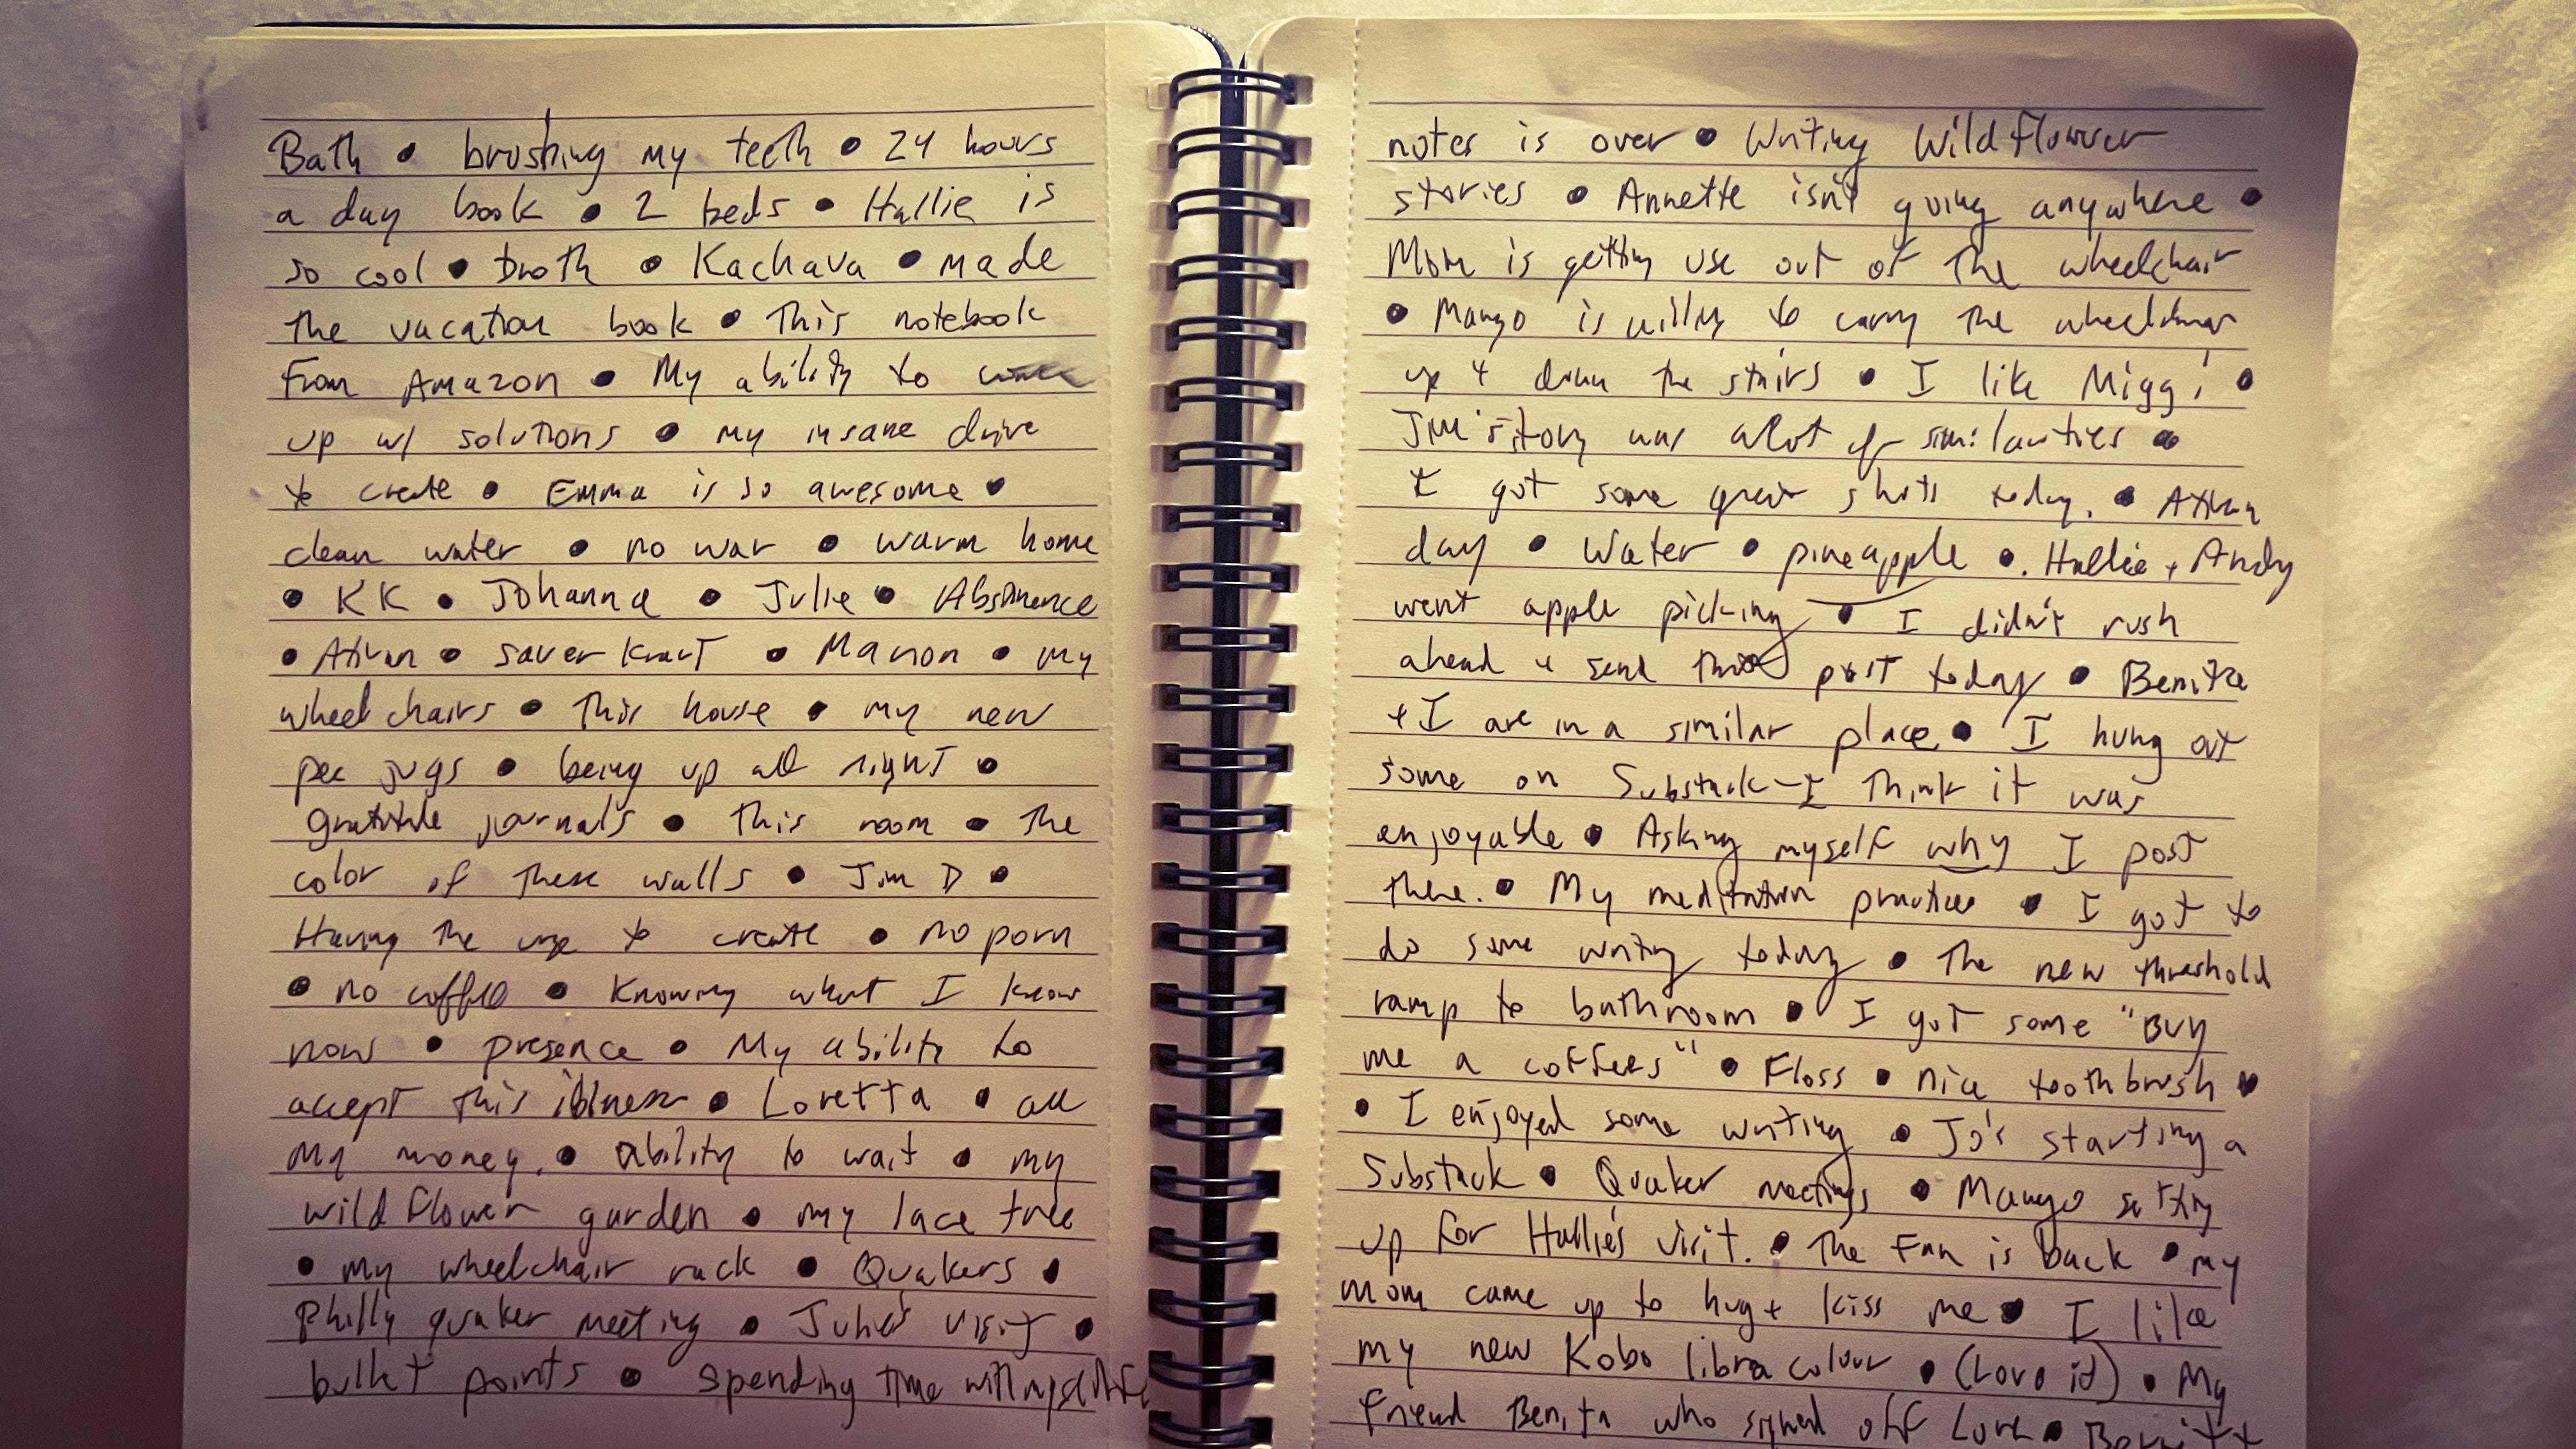 Bath • brushing my teeth • 24 hours
a day book • 2 beds • Hallie is
so cool • broth • Kachava • made
the vacation book • This notebook
from Amazon • My ability to
up w/ solutions • my insane drive
to create • Emma is so awesome •
clean water • no war • warm home
• KK • Johanna • Julie • Abstinence
• Ativan • saverkraut • Marion • my
wheelchairs • This house • my new
pee jugs • being up all night •
gratitude journals • This room • The
color of these walls • Jim D •
Having the urge to create • no porn
• no coffee • Knowing what I know
now • presence • My ability to
accept this illness • Loretta • all
my money. • Ability to wait • my
wildflower garden • my lace tree
• my wheelchair rack • Quakers •
Philly quaker meeting • Julie's visit •
bullet points • spending time with
notes is over • Writing Wildflower
stories • Annette isn't going anywhere •
Mom is getting use out of the wheelchair
• Mango is willing to carry the wheelchair
up + down the stairs • I like Miggi •
Jim's story was alot of similarities •
I got some great shots today. • Ativan
day • Water • pineapple • Hallie + Andy
went apple picking • I didn't rush
ahead + send this post today • Benita
+ I are in a similar place • I hung out
some on Substack - I think it was
enjoyable • Asking myself why I post
there. • My meditation practice • I got to
do some writing today • The new threshold
ramp to bathroom • I got some "Buy
me a coffees" • Floss • nice toothbrush •
• I enjoyed some writing • Jo's starting a
Substack • Quaker meetings • Mango setting
up for Hallie's visit. • The Fan is back • my
mom came up to hug + kiss me • I like
my new Kobo libra colour • (Love it) • My
friend Benita who signed off Love •